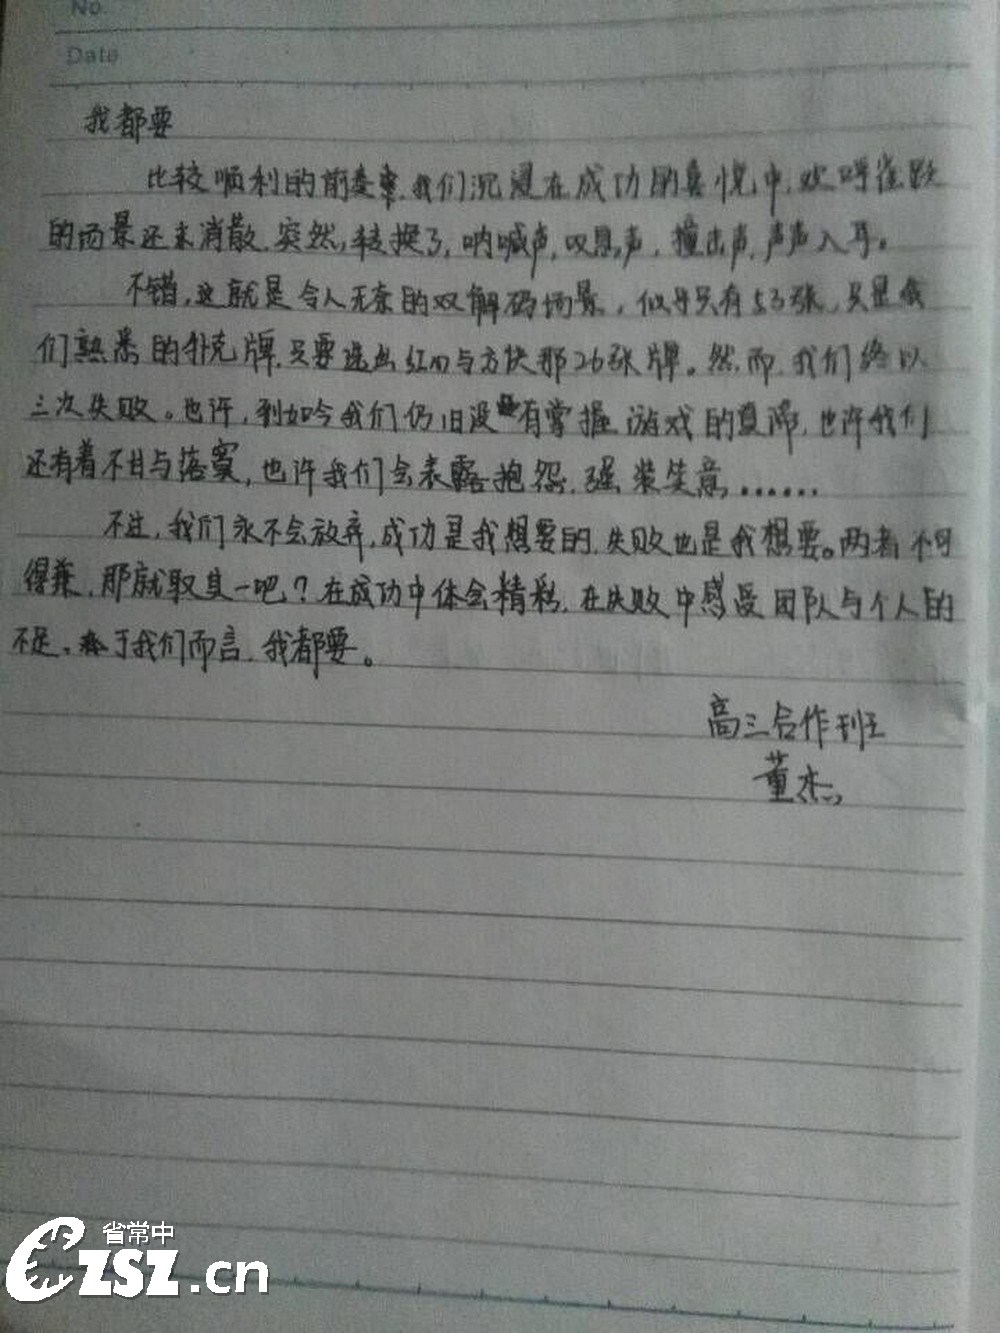 No.
Date
我都要
比较顺利的前奏率,我们沉浸在成功的喜悦中,欢呼雀跃
的场景还未消散,突然,转换了,呐喊声,叹息声,撞击声,声声入耳。
不错,这就是令人无奈的双解码场景,似乎只有53张,只是我
们熟悉的扑克牌,只要选出红心与方块那26张牌。然而,我们终以
三次失败。也许,到如今我们仍旧没有掌握游戏的真谛,也许我们
还有着不甘与落寞,也许我们会表露抱怨,强装笑意......
不过,我们永不会放弃,成功是我想要的,失败也是我想要。两者不可
得兼,那就取其一吧?在成功中体会精彩,在失败中感受团队与个人的
不足。于我们而言,我都要。
高三合作班
董杰
省常中
CZSZ.cn